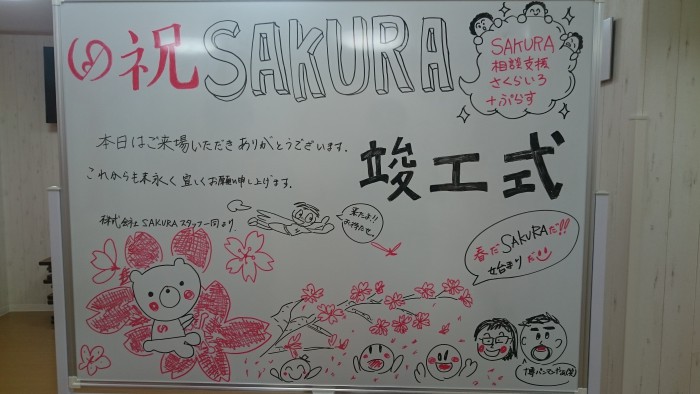 祝 SAKURA
SAKURA
相談支援
さくらいろ
+ぷらす
本日はご来場いただきありがとうございます。
これからも末永く宜しくお願い申し上げます。
株式会社 SAKURAスタッフ一同より
竣工式
来たよ!!
お待たせ。
春だSAKURAだ!!
始まりだ
S